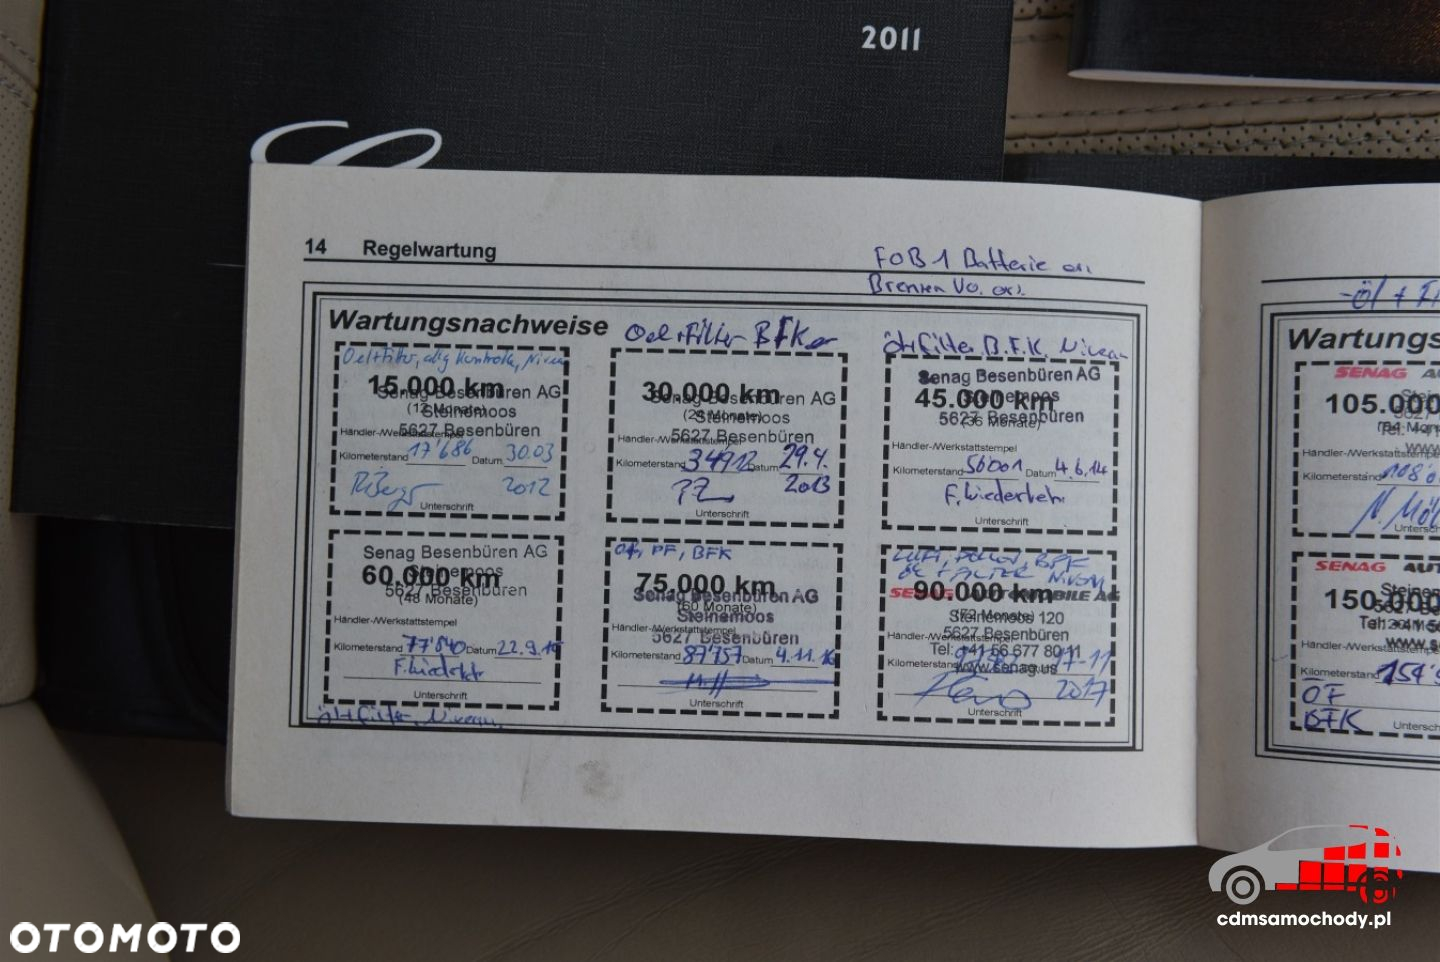 2011
14 Regelwartung
FOB 1 Batterie
Bremsen
Wartungsnachweise
Oel+Filter BFK
Öl+Filter B.F.K. Niveau
Oel+Filter, allg Kontrolle, Niveau
15.000 km
Senag Besenbüren AG
(12 Monate)
Steinemoos
5627 Besenbüren
Händler-/Werkstattstempel
Kilometerstand 17'686 Datum 30.03
2012
Unterschrift
30.000 km
Senag Besenbüren AG
(24 Monate)
Steinemoos
5627 Besenbüren
Händler-/Werkstattstempel
Kilometerstand 34912 Datum 29.4.
2013
Unterschrift
Senag Besenbüren AG
45.000 km
Steinemoos
(36 Monate)
5627 Besenbüren
Händler-/Werkstattstempel
Kilometerstand 56001 Datum 4.6.14
F. Niederkehr
Unterschrift
Senag Besenbüren AG
60.000 km
Steinemoos
5627 Besenbüren
(48 Monate)
Händler-/Werkstattstempel
Kilometerstand 77'840 Datum
Unterschrift
Öl+Filter, Niveau
OF, PF, BFK
75.000 km
Senag Besenbüren AG
(60 Monate)
Steinemoos
5627 Besenbüren
Händler-/Werkstattstempel
Kilometerstand 87'757 Datum 4.11.16
Unterschrift
LUFT, POLLEN, BFK
ÖL + FILTER NIVEAU
90.000 km
SENAG AUTOMOBILE AG
(72 Monate)
Steinemoos 120
5627 Besenbüren
Händler-/Werkstattstempel
Tel: +41 56 677 80 11
Kilometerstand 17-11
www.senag.us
2017
Unterschrift
Öl +
Wartungs
SENAG
105.000
(84 Mona
Händler-/Werkstattstempe
Kilometerstand
Untersch
SENAG AUT
150.000
Steinem
Tel: +41 56
www.s
Kilometerstand 154'
OF
BFK
Untersch
OTOMOTO
cdmsamochody.pl